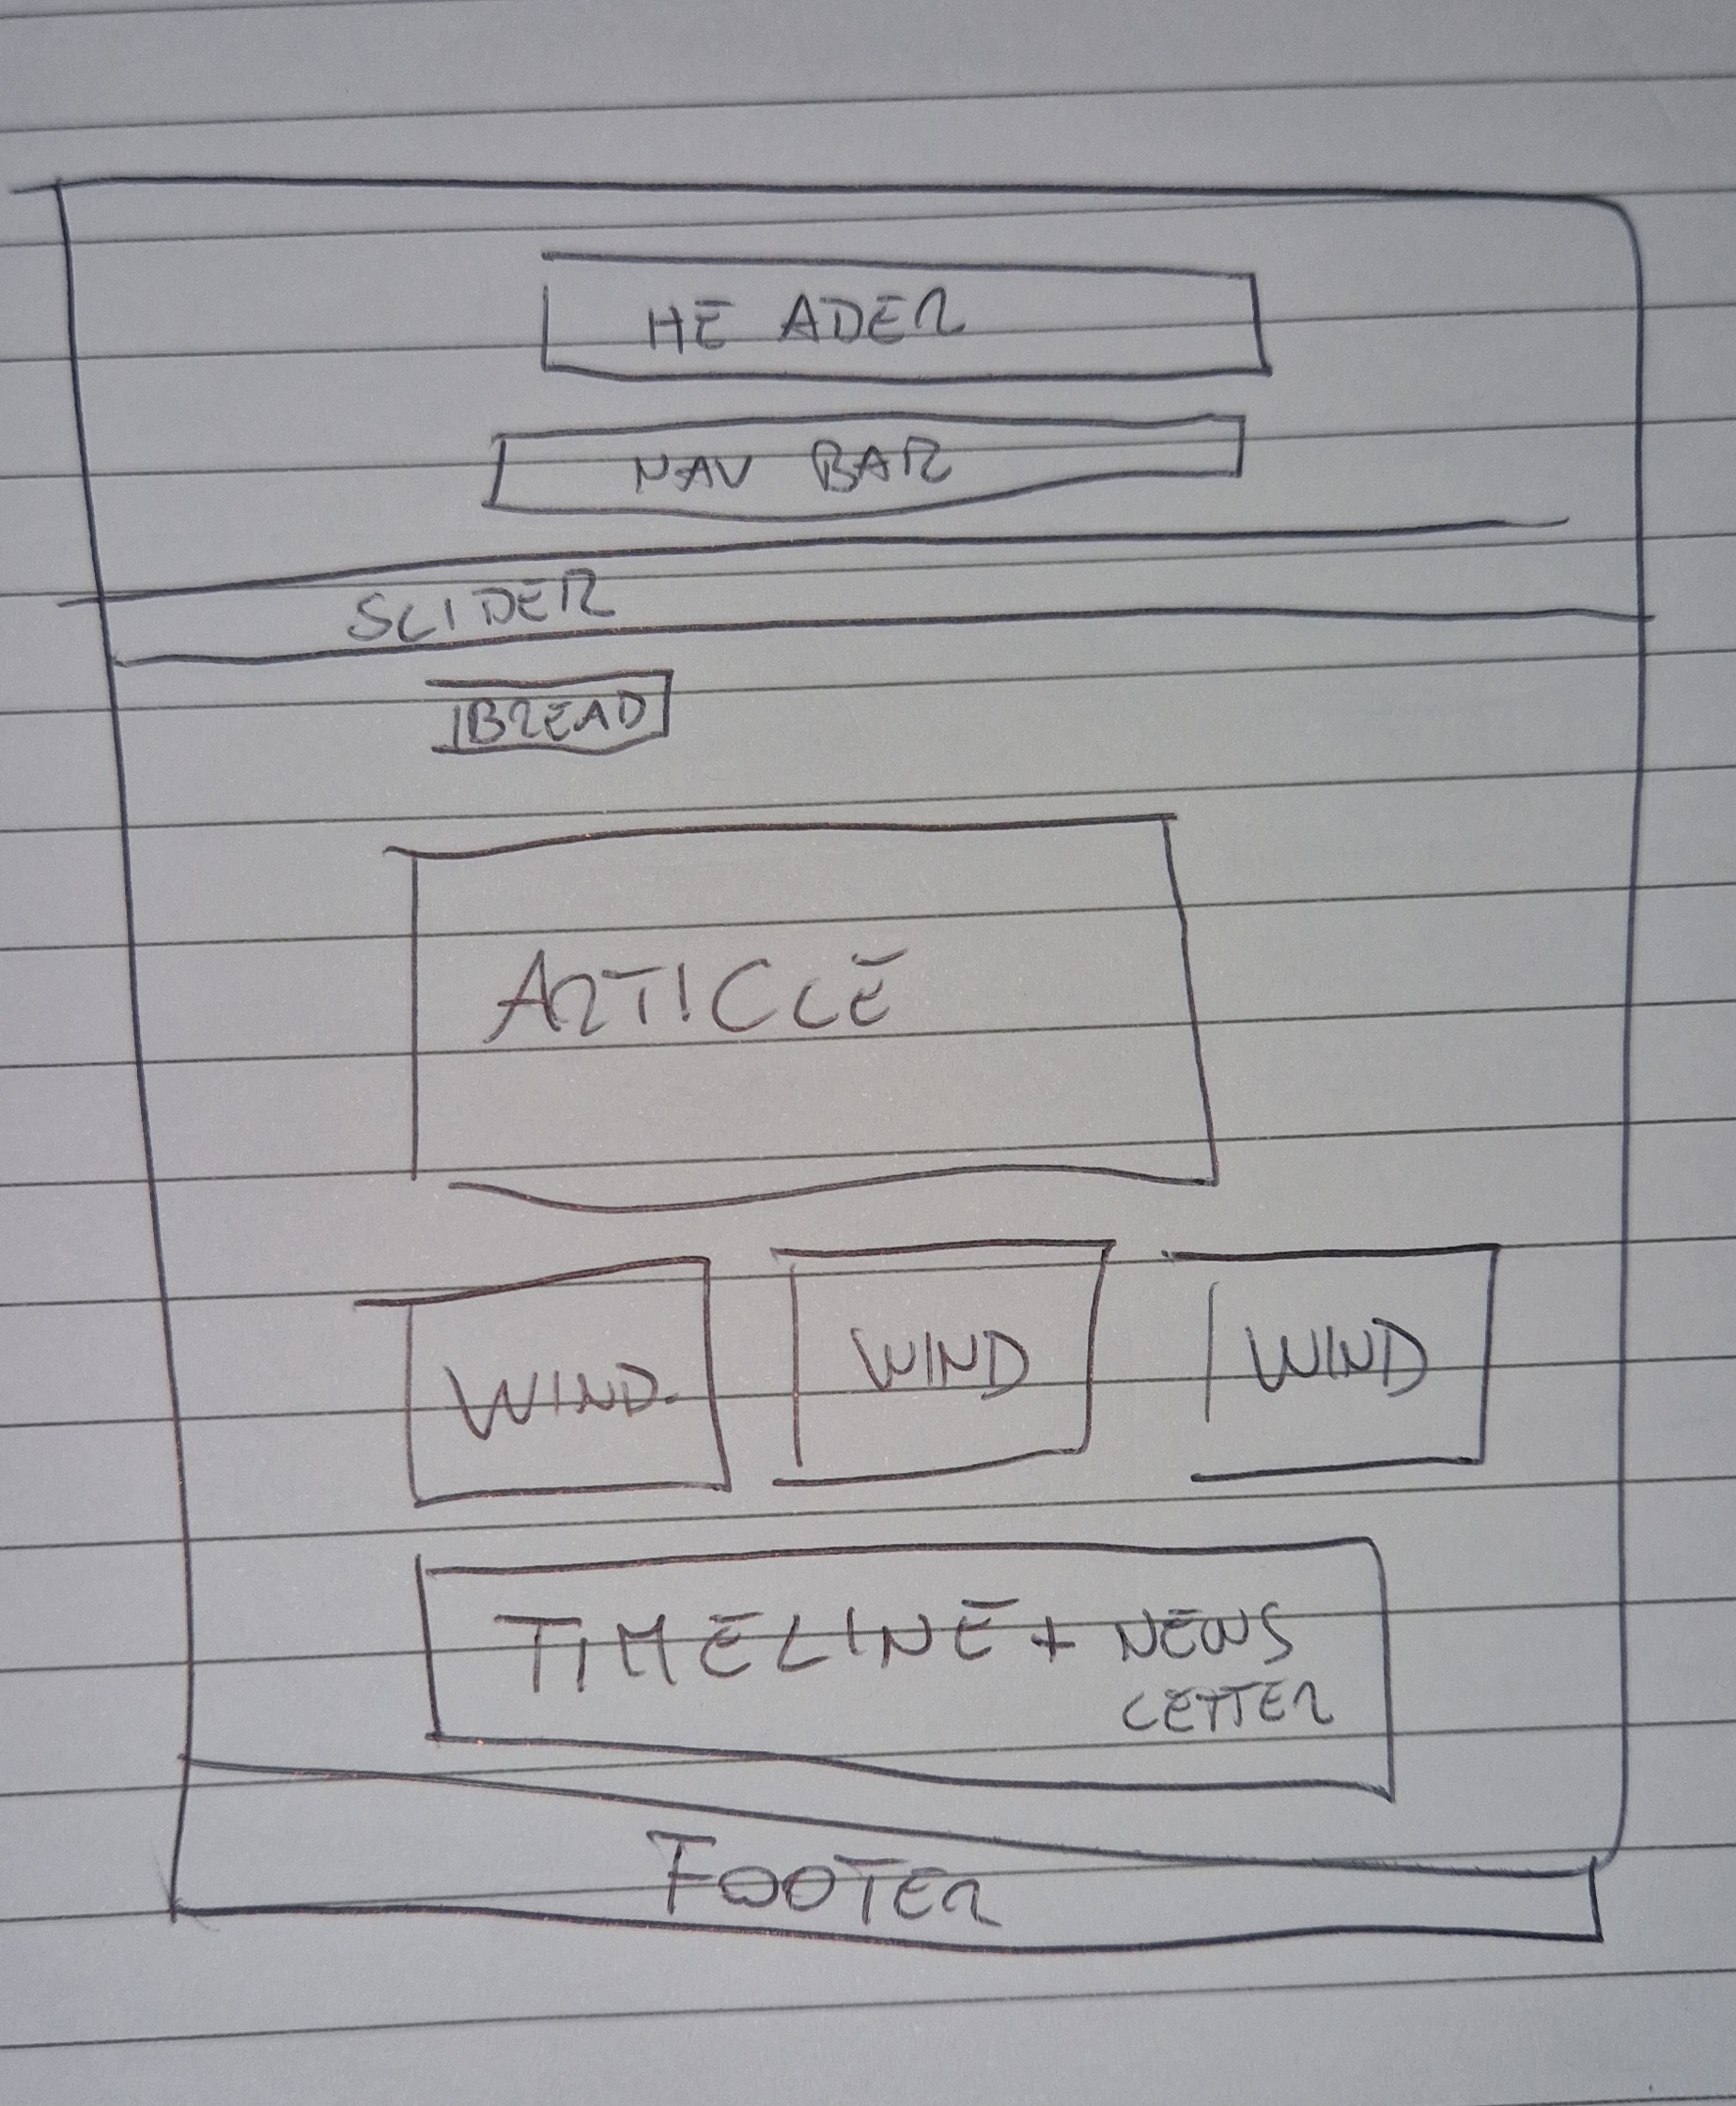 HEADER
NAV BAR
SLIDER
BREAD
ARTICLE
WIND. WIND WIND
TIMELINE + NEWS
LETTER
FOOTER